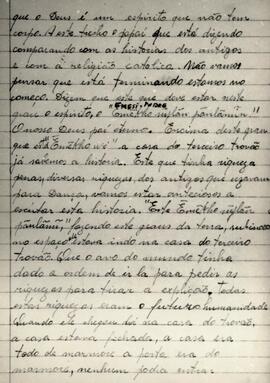 que o Deus é um espirito que não tem
corpo. A este trecho o papai que está dizendo
comparando com as historias dos antigos
e com a religião catolica. Não vamos
pensar que está terminando estamos no
começo. Dizem que este que deve estar neste
EMESI: MOÃNE
grau o espirito, o "
O nosso Deus pai eterno. Encima deste grau
que está a casa do terceiro trovão
já sabemos a historia. Este que tinha riqueza
penas diversas riquezas, dos antigos que usavam
para Dança, vamos estar anciosos a
escutar esta historia. "Este
fazendo este graus da terra, subindo
no espaço estava indo na casa do terceiro
trovão. Que o avo do mundo tinha
dado a ordem de ir la para pedir as
riquezas para tirar a explicção, todas
estas riquezas eram o futuro humanidade
Quando ele chegou foi na casa do trovão,
a casa estava fechada, a casa era
todo de marmore a porta era do
marmore, nenhum podia entrar